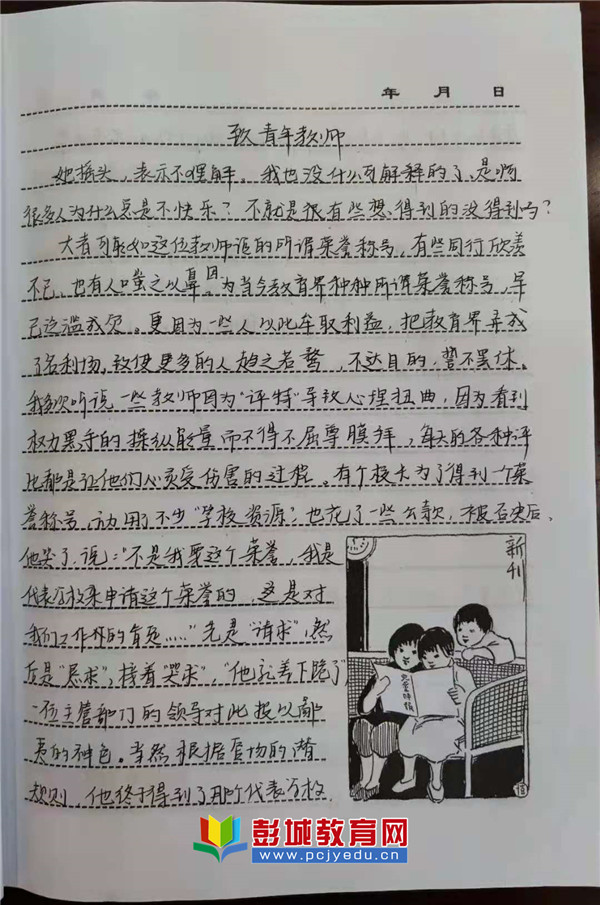 年 月 日
致青年教师
她摇头,表示不理解。我也没什么可解释的了,是啊
很多人为什么总是不快乐?不就是很有些想得到的没得到吗?
大者可能如这位教师说的所谓荣誉称号,有些同行欣羡
不已,也有人嗤之以鼻。因为当今教育界种种所谓荣誉称号,早
已泛滥成灾。更因为一些人以此牟取利益,把教育界弄成
了名利场,致使更多的人趋之若鹜,不达目的,誓不罢休。
我多次听说一些教师因为“评特”导致心理扭曲,因为看到
权力黑手的操纵能量而不得不屈尊膜拜,每天的各种评
比都是让他们心灵受伤害的过程。有个校长为了得到一个荣
誉称号,动用了不少“学校资源”也花了一些公款,被否决后、
他哭了,说:“不是我要这个荣誉,我是
代表学校来申请这个荣誉的,这是对
我们工作的肯定……”先是“请求”,然
后是“恳求”,接着“哭求”,“他就差下跪了”
一位主管部门的领导对此投以鄙
夷的神色。当然根据官场的潜
规则,他终于得到了那个代表学校
新刊
彭城教育网
www.pcjyedu.cn